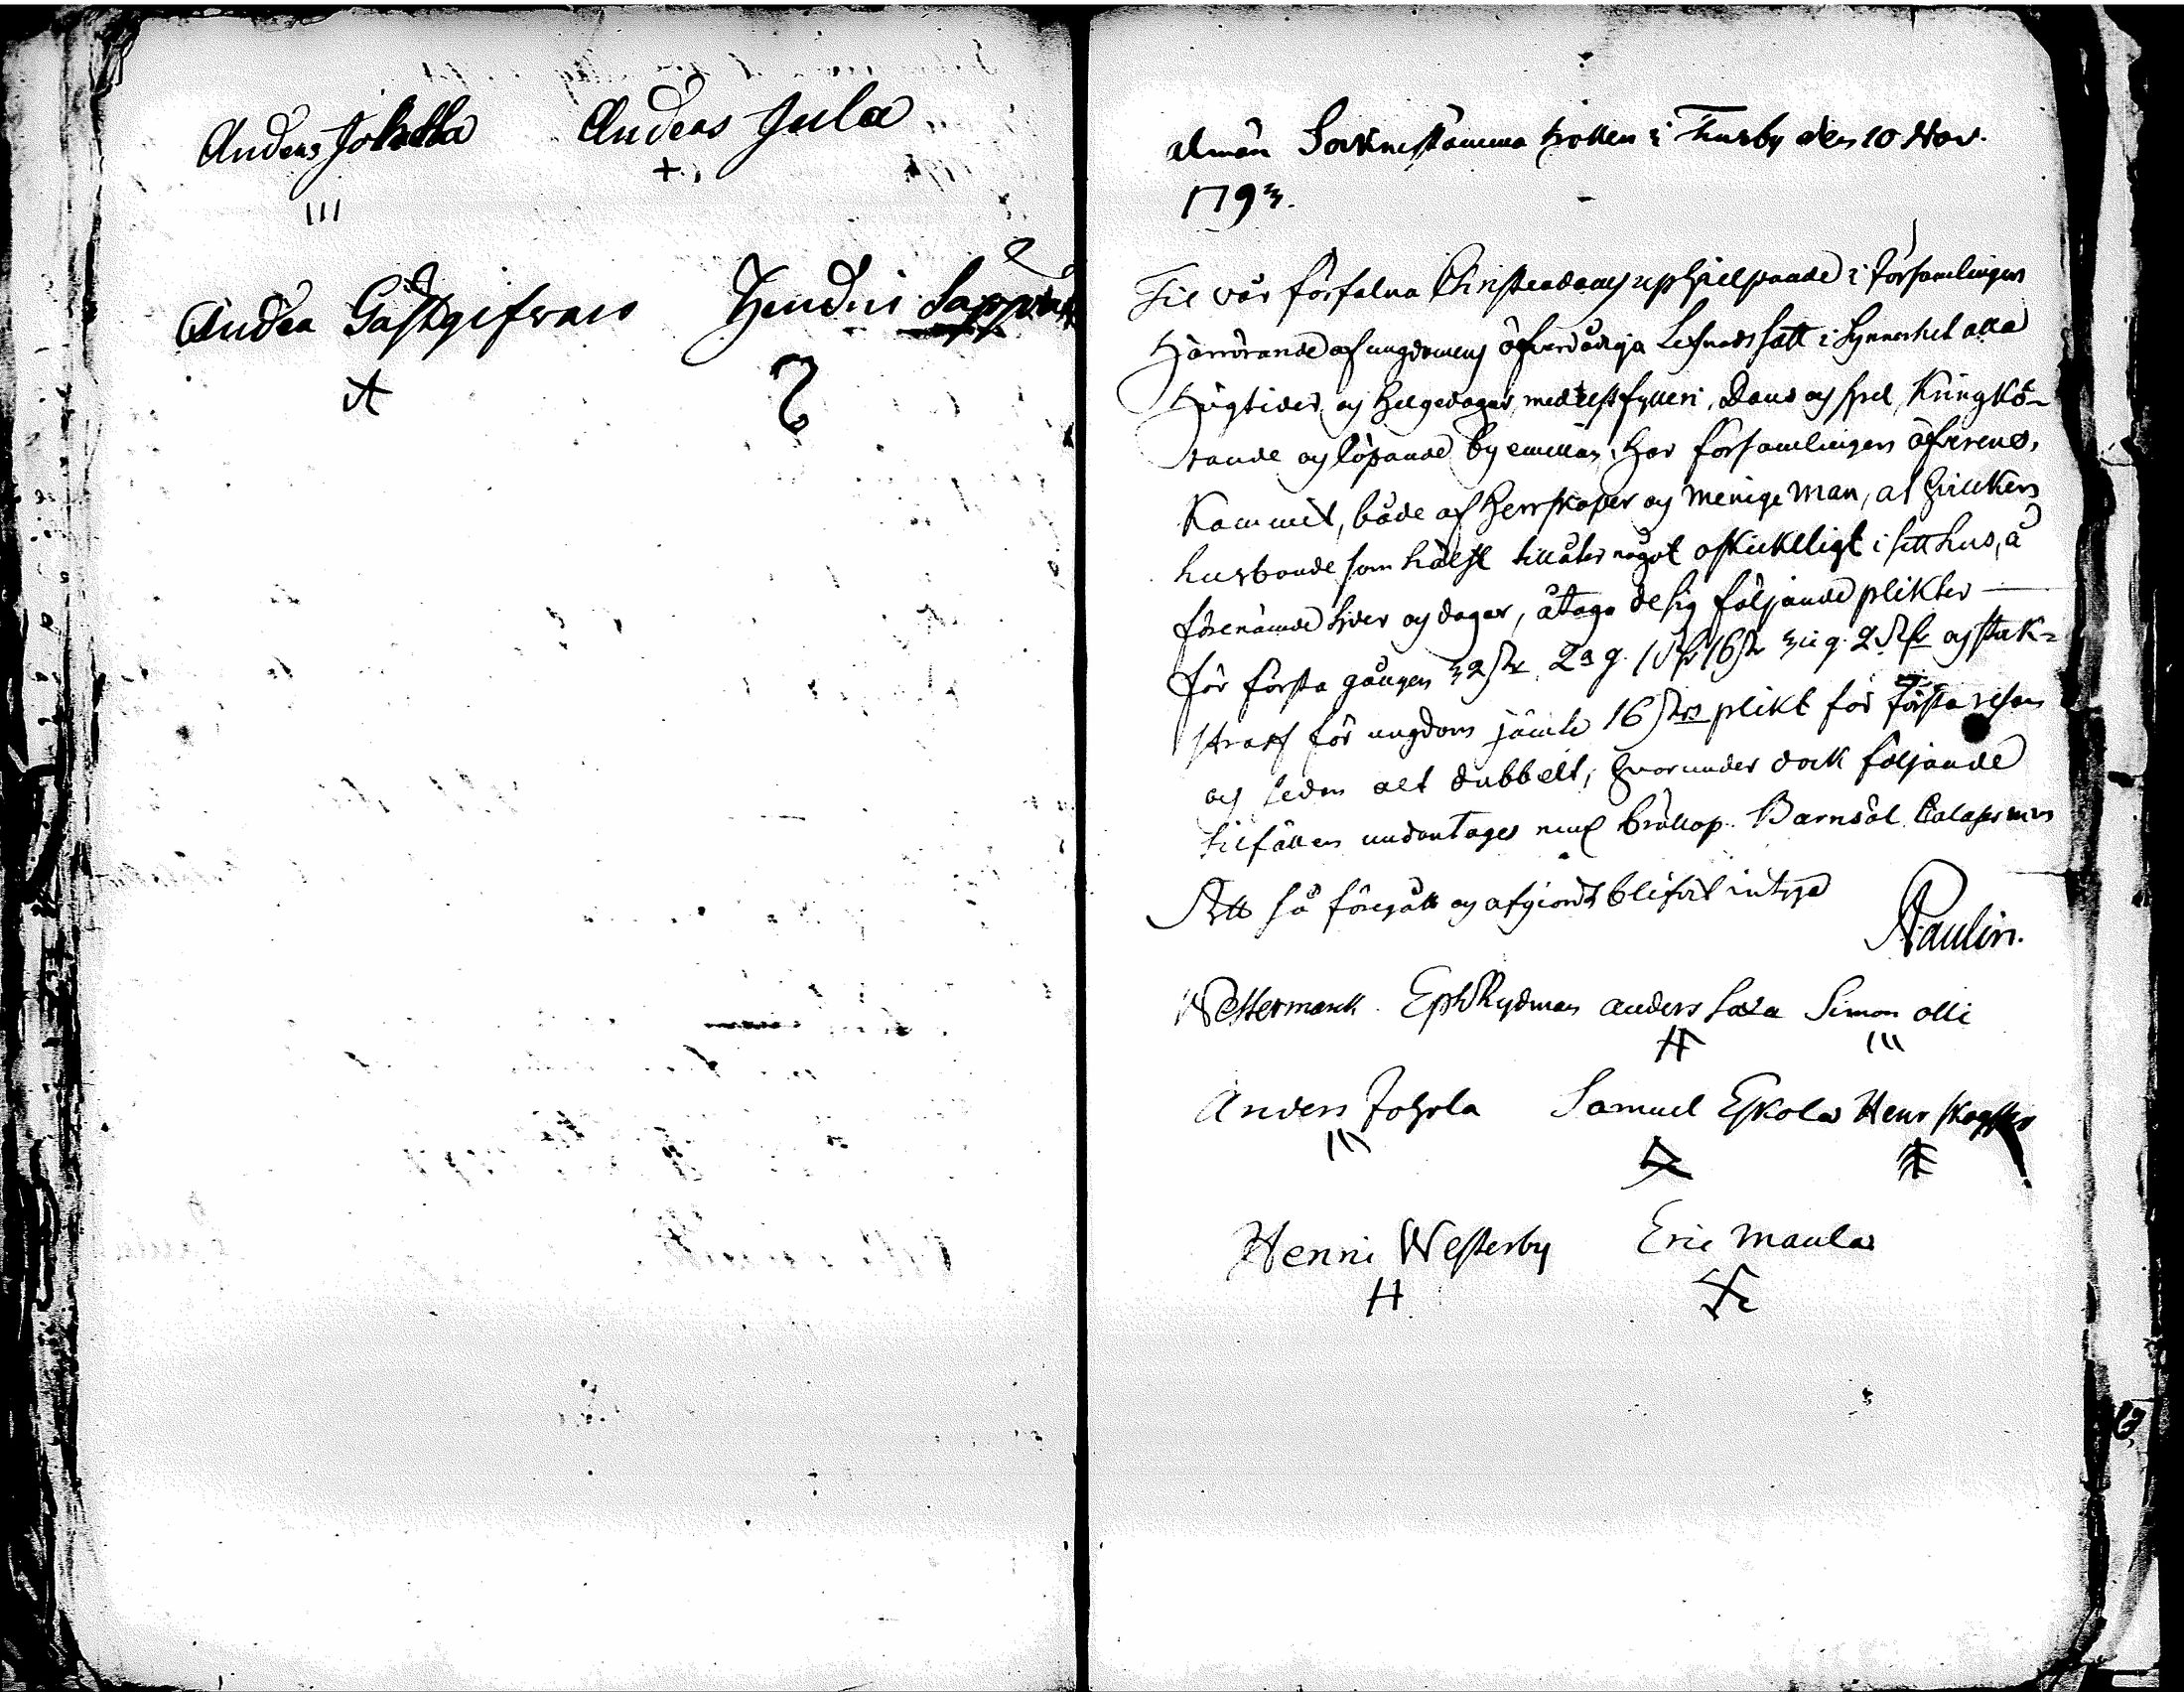 Anders Johctla Anders Jula
+
III
Andea Gästgifvars Hendric
Almän Soknestämma hollen i Thusby den 10 Nov.
1793.
Til vår förfalna Christendoms uphjelpande i Församlingen
Härrörande af ungdomens öfverdådiga Lefnadssätt i synnerhet alla
högtider og helgedagar, med fylleri, Dans og spel, Kringkö-
rande og löpande by emellan, har församlingen öfverens-
kommit, både af Herrskaper og Menige Man, at hvilken
husbonde som hälst tillåter något oskickligt i sitt hus, å
förenämde tider og dagar, åtaga de sig följande plikter —
för första gången 32 s. 2a g. 1 R 16 s. 3ie g. 2 R og stok-
straff för ungdom jämte 16 s. plikt för första resan
og sedan alt dubbelt; hvarunder dock följande
tilfällen undantages neml. bröllop. Barnsöl
Att så föregått og afgiordt blifvit intyga
Paulin.
Westermark. Eph Rydman Anders Saxa Simon Olli
III
Anders Johola Samuel Eskola Henr
III
Henric Westerby Eric Maula
H